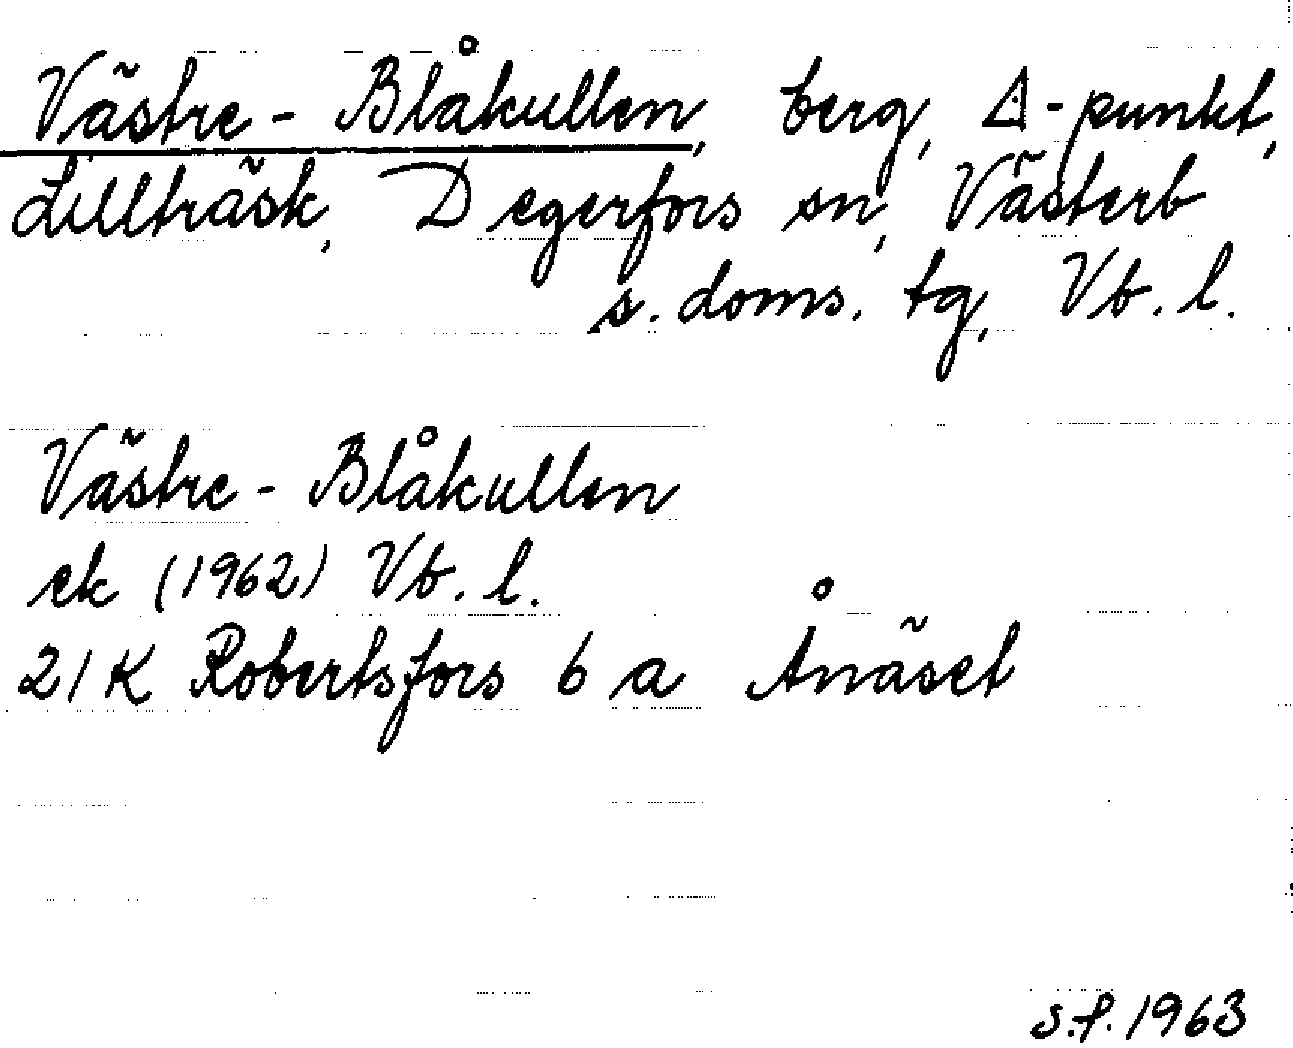 Västre - Blåkullen, berg, Δ-punkt,
Lillträsk, Degerfors sn, Västerb
s. doms. tg, Vb. l.
Västre - Blåkullen
ek (1962) Vb. l.
21K Robertsfors 6 a Ånäset
s.f. 1963